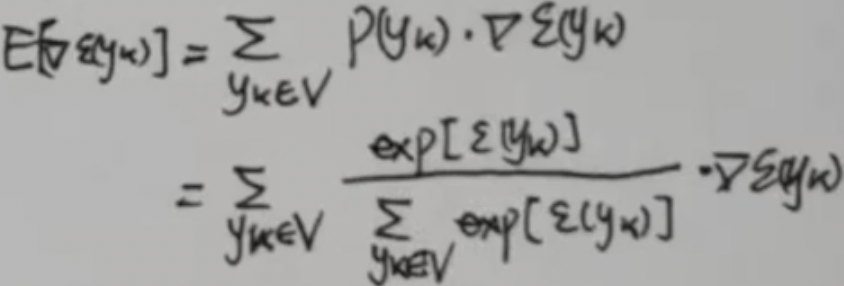 E[∇ε(yₖ)] = ∑_{yₖ∈V} P(yₖ)·∇ε(yₖ)
= ∑_{yₖ∈V} exp[ε(yₖ)] / ∑_{yₖ∈V} exp[ε(yₖ)] ·∇ε(yₖ)